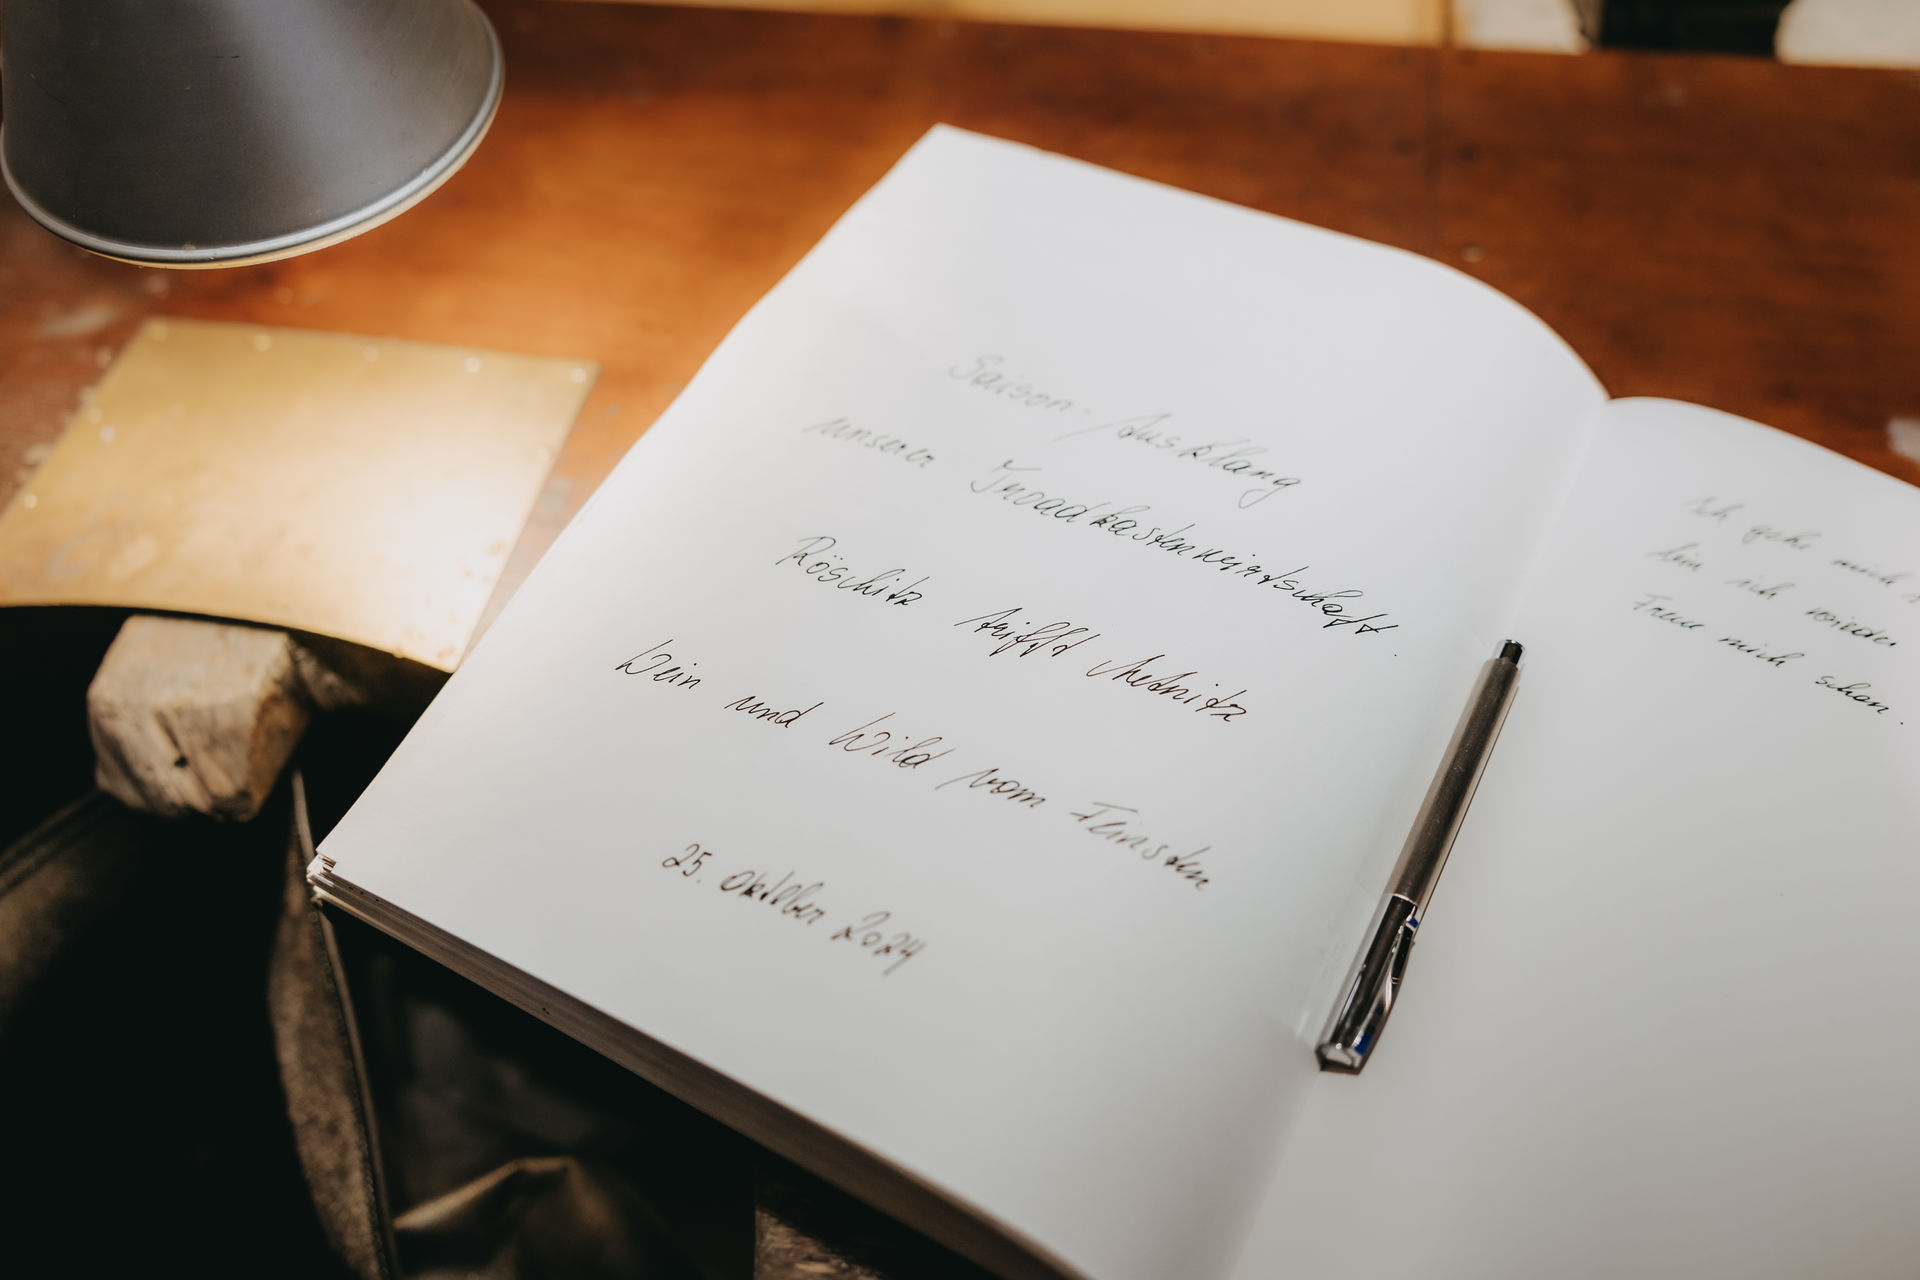 Saison-Ausklang
unserer Troadkastenwirtschaft.
Röschitz trifft Metnitz
Wein und Wild vom Feinsten
25. Oktober 2024
Ich gehe mich
bin ich wieder
Freue mich schon.